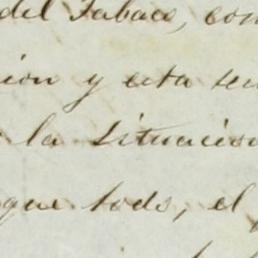 del Tabaco, con
ion y esta sen
la situacion
que todo, el